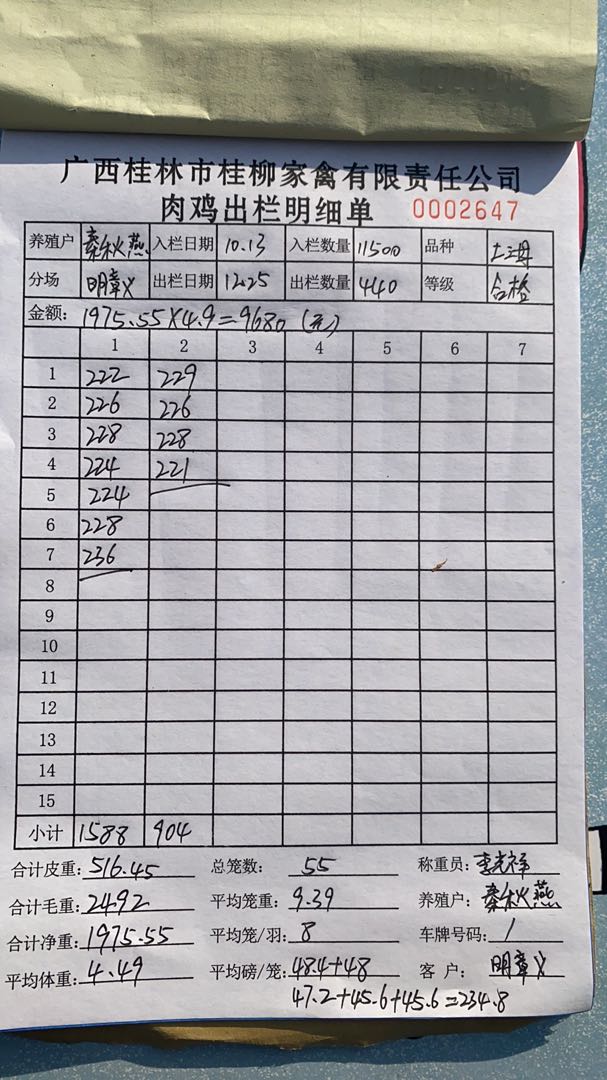 广西桂林市桂柳家禽有限责任公司
肉鸡出栏明细单 0002647
养殖户 秦秋燕 入栏日期 10.13 入栏数量 11500 品种 土2母
分场 明章义 出栏日期 12.25 出栏数量 440 等级 合格
金额: 1975.55×4.9=9680 (元)
1 2 3 4 5 6 7
1 222 229
2 226 226
3 228 228
4 224 221
5 224
6 228
7 236
8
9
10
11
12
13
14
15
小计 1588 904
合计皮重: 516.45 总笼数: 55 称重员: 李光祥
合计毛重: 2492 平均笼重: 9.39 养殖户: 秦秋燕
合计净重: 1975.55 平均笼/羽: 8 车牌号码: 1
平均体重: 4.49 平均磅/笼: 48.4+48 客 户: 明章义
47.2+45.6+45.6=234.8